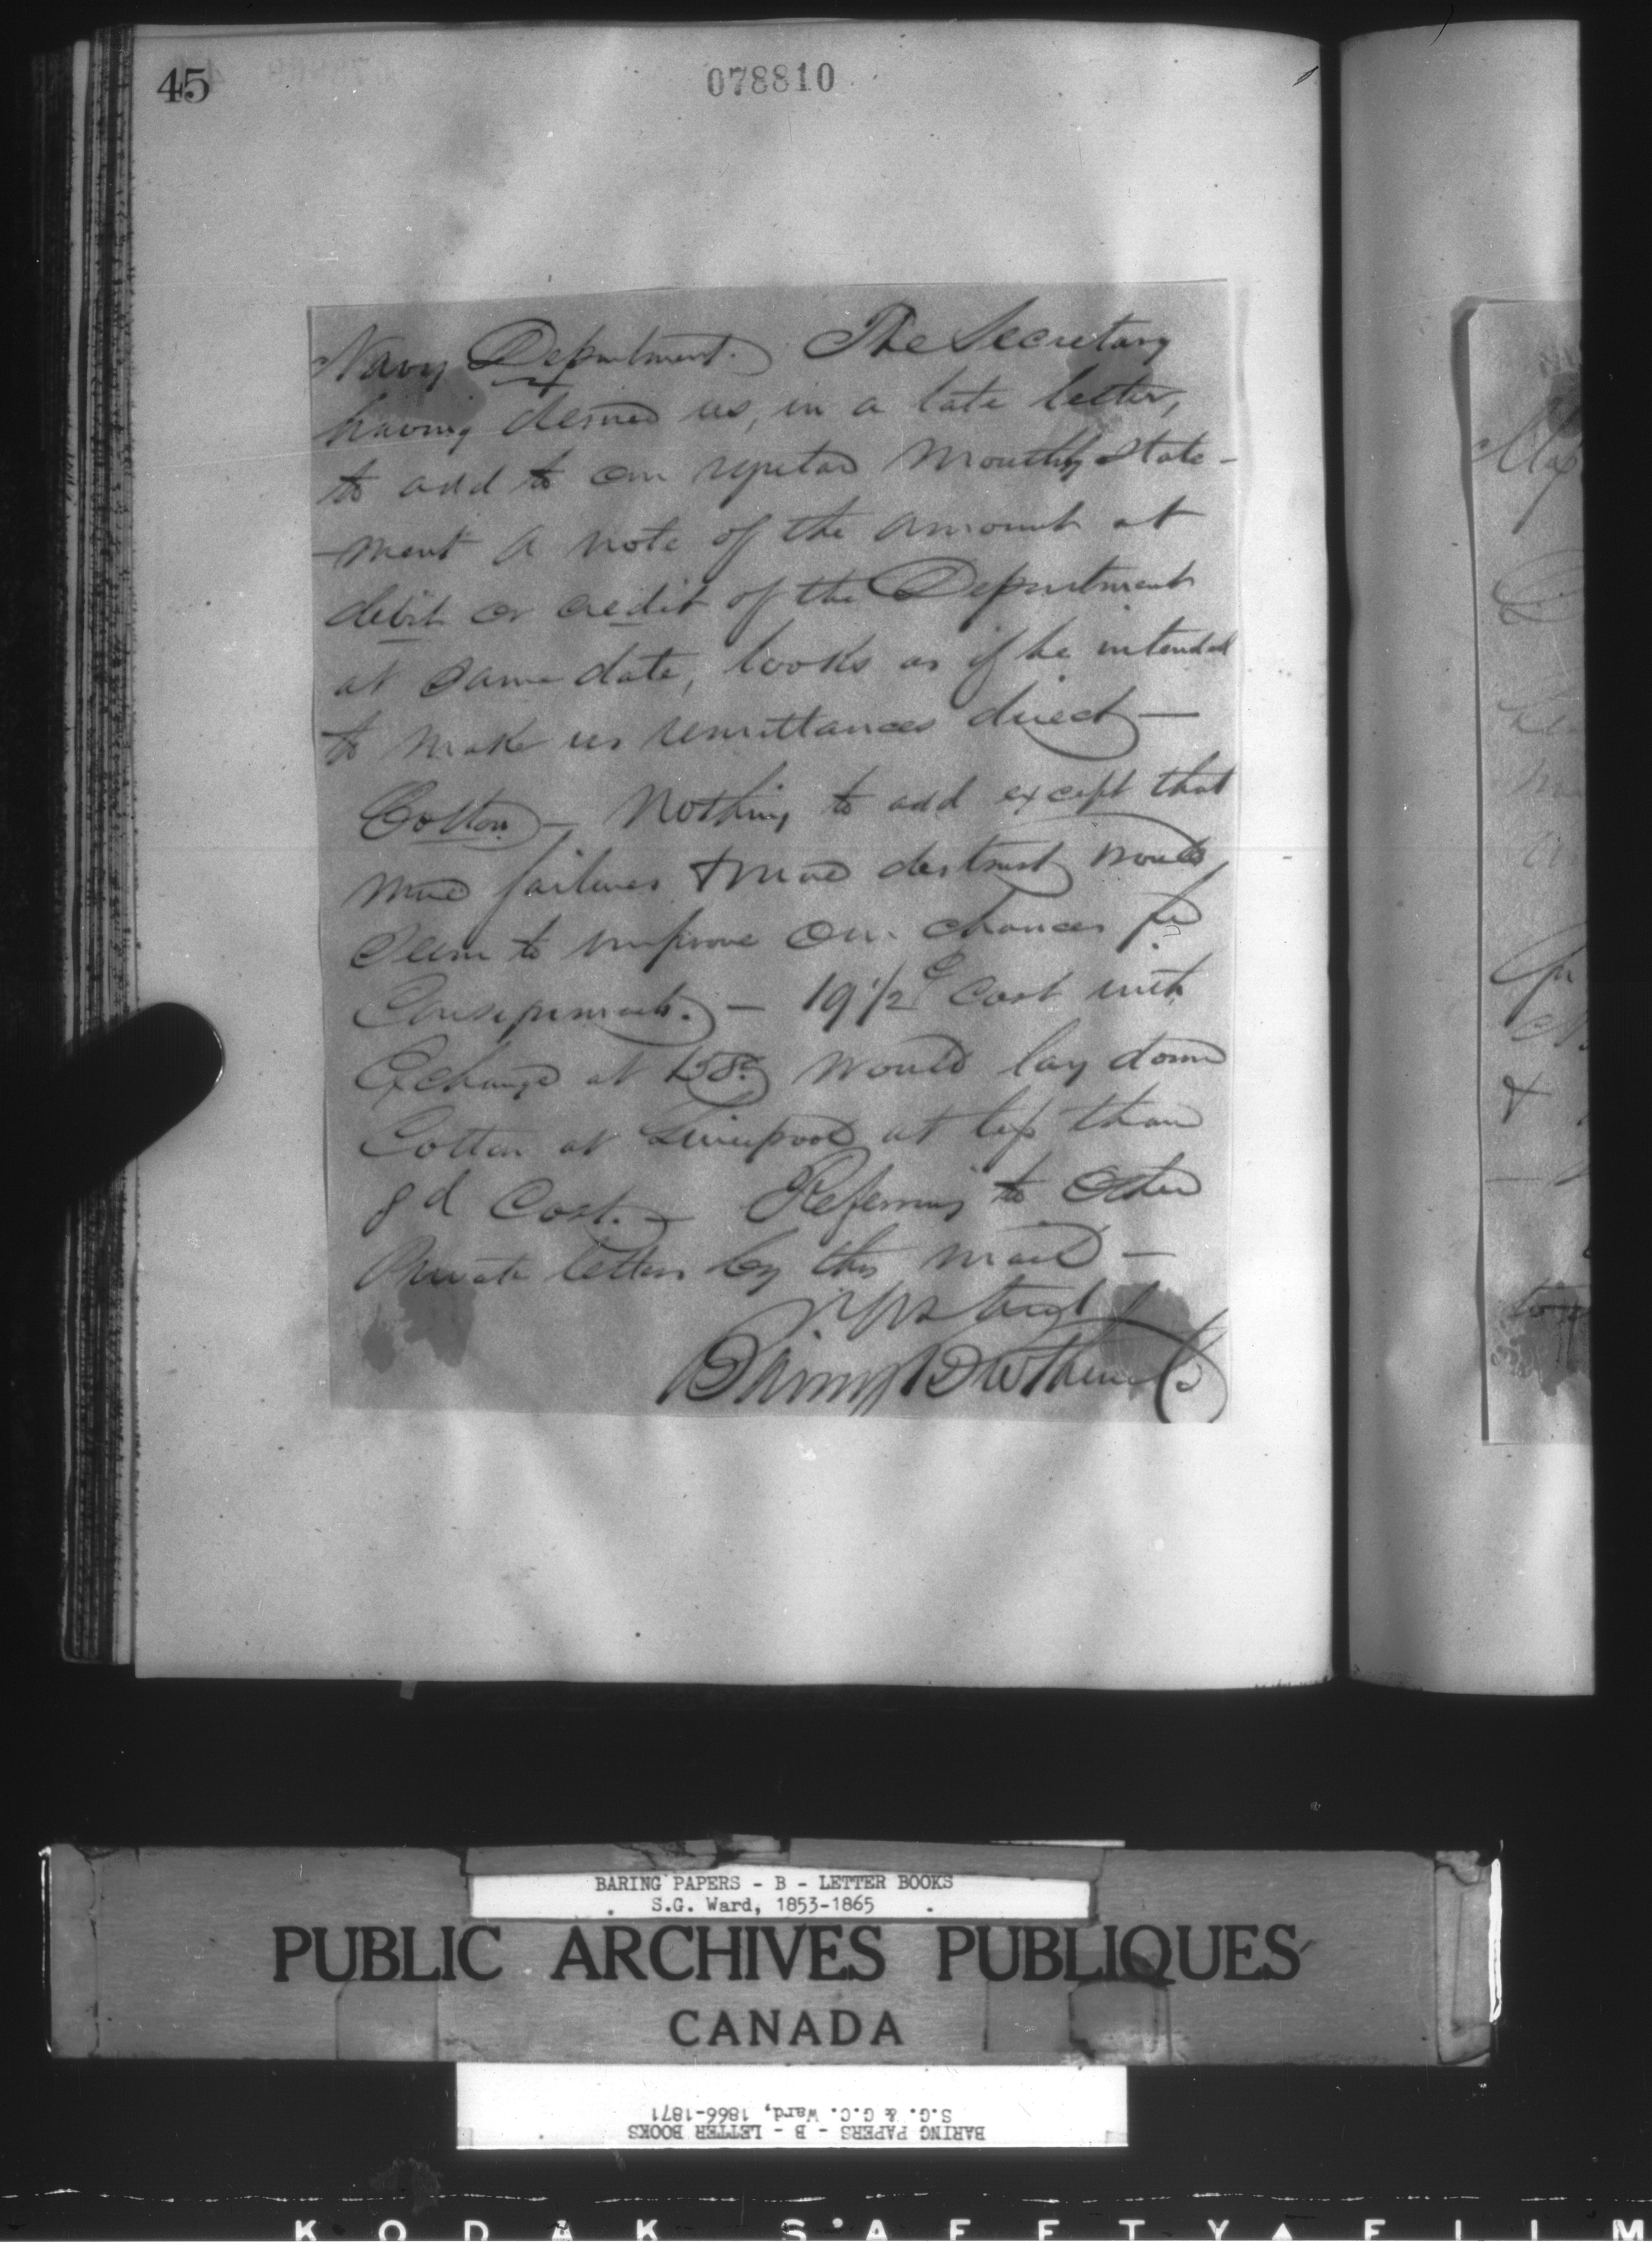 45
078810
Navy Department. The Secretary
having desired us, in a late letter,
to add to our regular monthly state-
-ment a note of the amount at
debit or credit of the Department
at same date, looks as if he intended
to make us remittances direct —
Cotton — Nothing to add except that
more failures & more distrust would
seem to improve our chances for
Consignments. — 19 1/2 c cost with
Exchange at 158 would lay down
Cotton at Liverpool at less than
8d Cost. — Referring to other
Private letters by this mail —
Baring Brothers & Co
BARING PAPERS - B - LETTER BOOKS
S.G. Ward, 1853-1865
PUBLIC ARCHIVES PUBLIQUES
CANADA
BARING PAPERS - B - LETTER BOOKS
S.G. & G.C. Ward, 1866-1871
KODAK SAFETY FILM